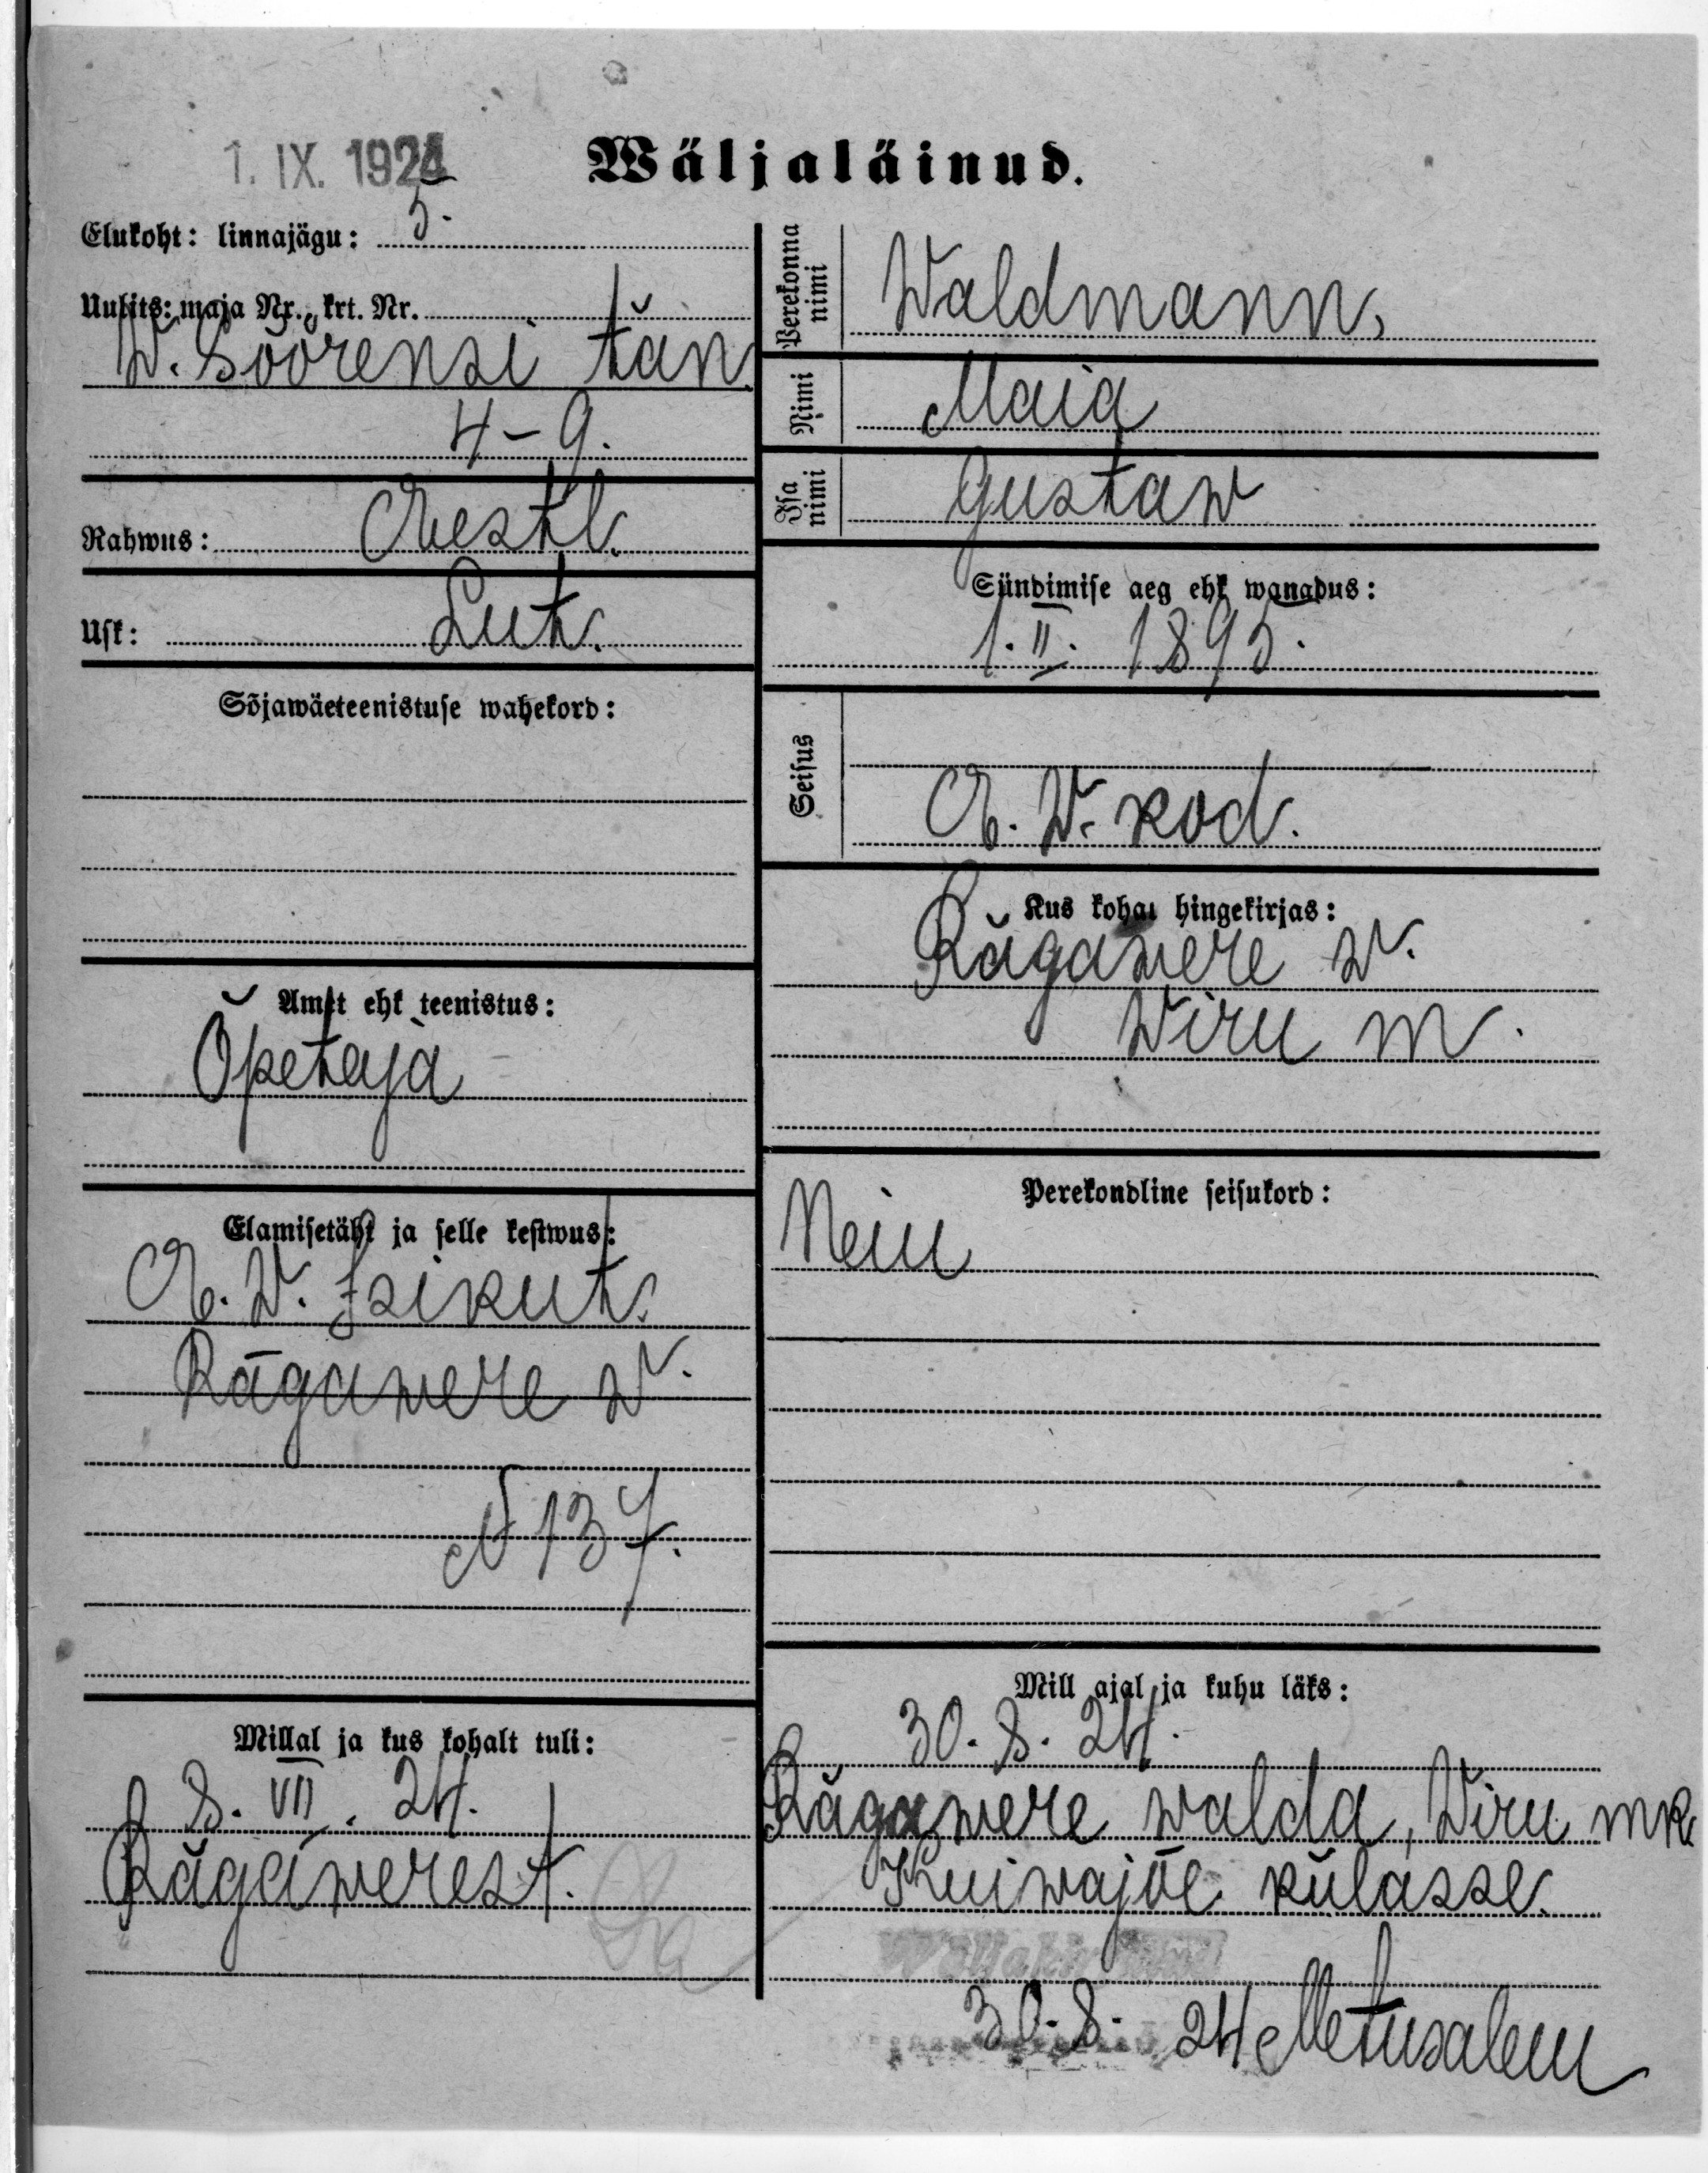 1. IX. 1924
Wäljaläinud.
Elukoht: linnajägu: 5.
Uulits: maja Nr., krt. Nr.
W. Söörensi tän.
4-9.
Rahwus: Eestl.
Usk: Lut.
Sõjawäeteenistuse wahekord:
Amet ehk teenistus:
Õpetaja
Elamisetäht ja selle kestwus:
E. W. Isikut.
Rägawere w.
N 137.
Millal ja kus kohalt tuli:
8. VII. 24.
Rägawerest.
Perekonna nimi
Waldmann,
Nimi
Maia
Isa nimi
Gustaw
Sündimise aeg ehk wanadus:
1. II. 1895.
Seisus
E. W. kod.
Kus kohal hingekirjas:
Rägawere w.
Wiru m.
Perekondline seisukord:
Neiu
Mill ajal ja kuhu läks:
30. 8. 24.
Rägawere walda, Wiru mk.
Kuiwajõe külasse.
30. 8. 24 Metusalem